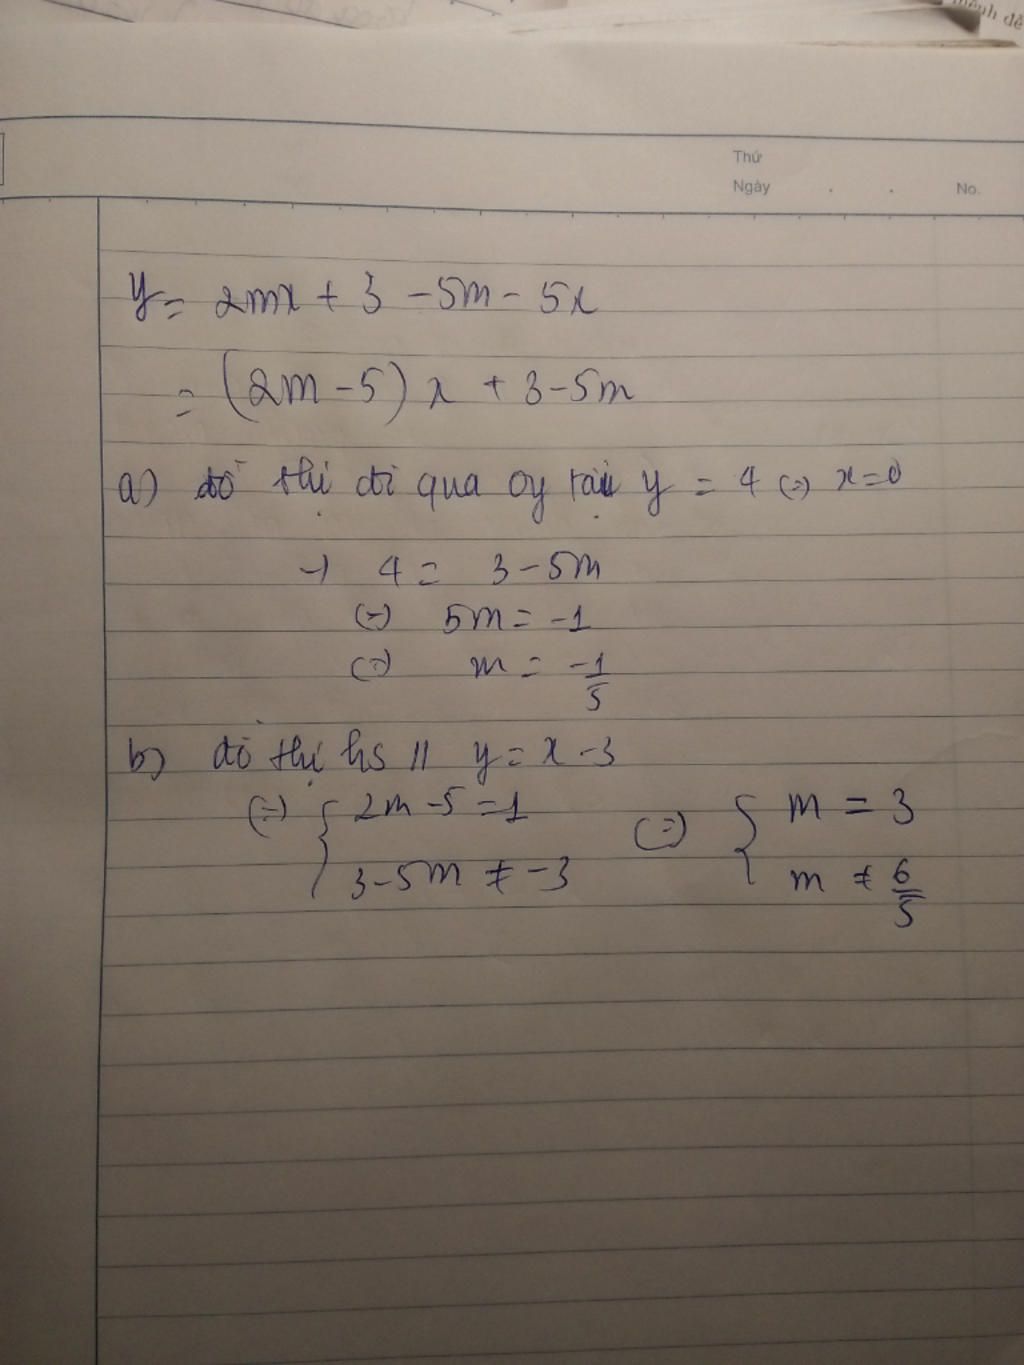 mệnh đề
Thứ
Ngày . . No.
y = 2mx + 3 - 5m - 5x
= (2m - 5) x + 3 - 5m
a) đồ thị đi qua oy tại y = 4 (=) x = 0
→ 4 = 3 - 5m
(=) 5m = -1
(=) m = -1/5
b) đồ thị hs // y = x - 3
(=) { 2m - 5 = 1 (=) { m = 3
3 - 5m ≠ -3 m ≠ 6/5